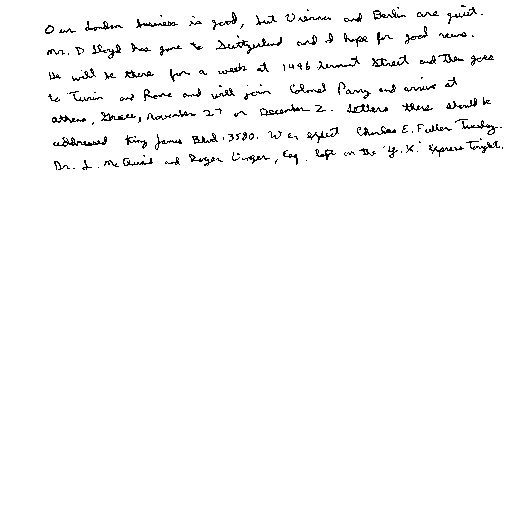 Our London business is good, but Vienna and Berlin are quiet.
Mr. D Lloyd has gone to Switzerland and I hope for good news.
He will be there for a week at 1496 Zermott Street and then goes
to Turin and Rome and will join Colonel Parry and arrive at
Athens, Greece, November 27 or December 2. Letters there should be
addressed King James Blvd. 3580. We expect Charles E. Fuller Tuesday.
Dr. L. McQuaid and Roger Unger, Esq. left on the "Y.X." Express Tonight.